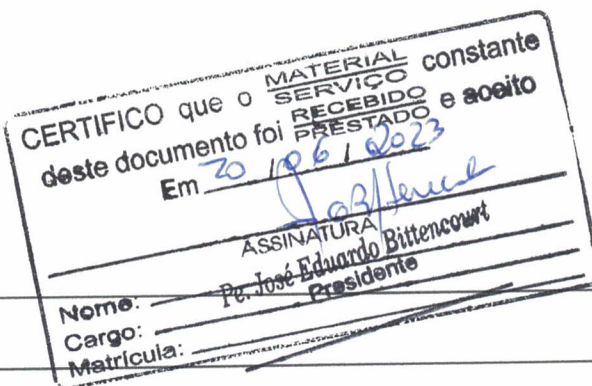 CERTIFICO que o MATERIAL SERVIÇO constante
deste documento foi RECEBIDO PRESTADO e aceito
Em 20 / 06 / 2023
ASSINATURA
Nome: Pe. José Eduardo Bittencourt
Cargo: Presidente
Matrícula: